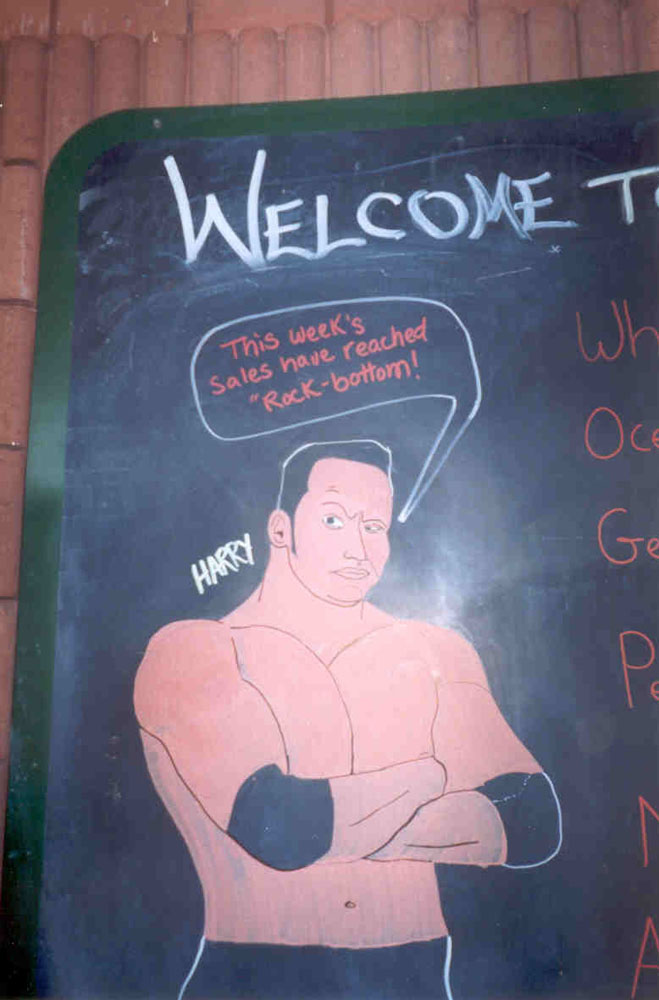 WELCOME T
This week's
sales have reached
"Rock-bottom!
HARRY
Wh
Oce
Ge
Pe
A